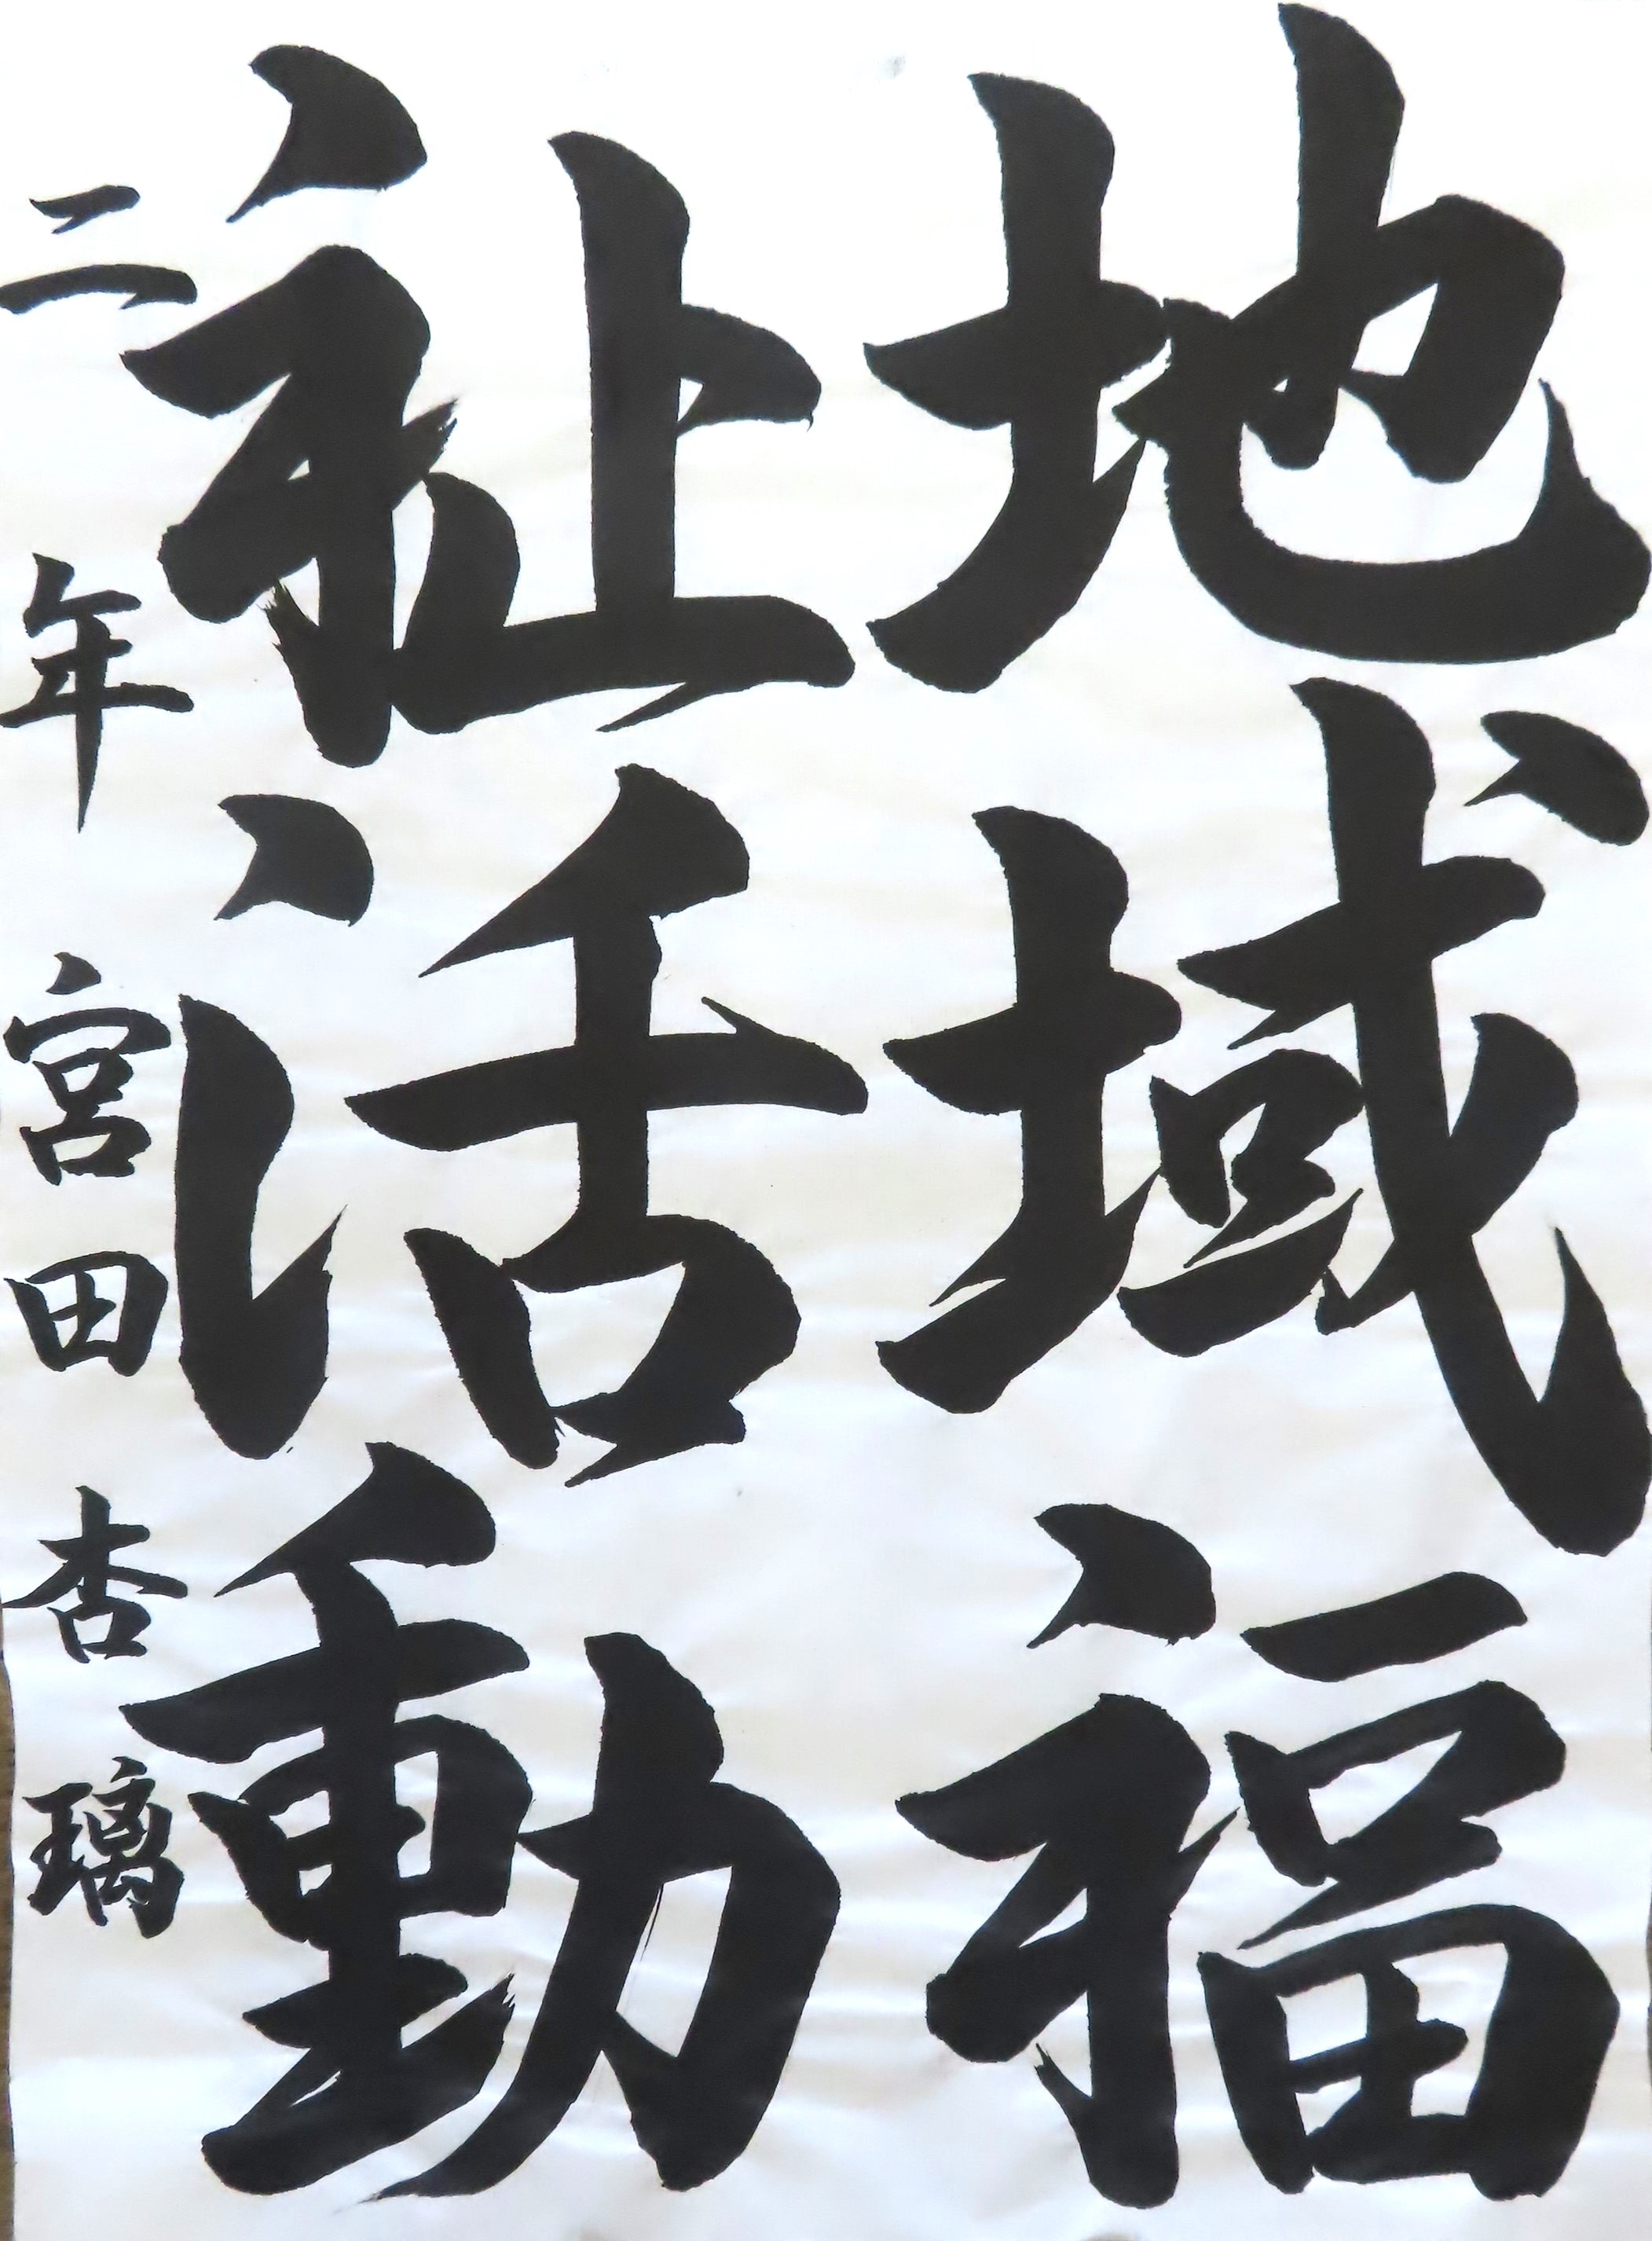 地域福
祉活動
二年 宮田杏璃